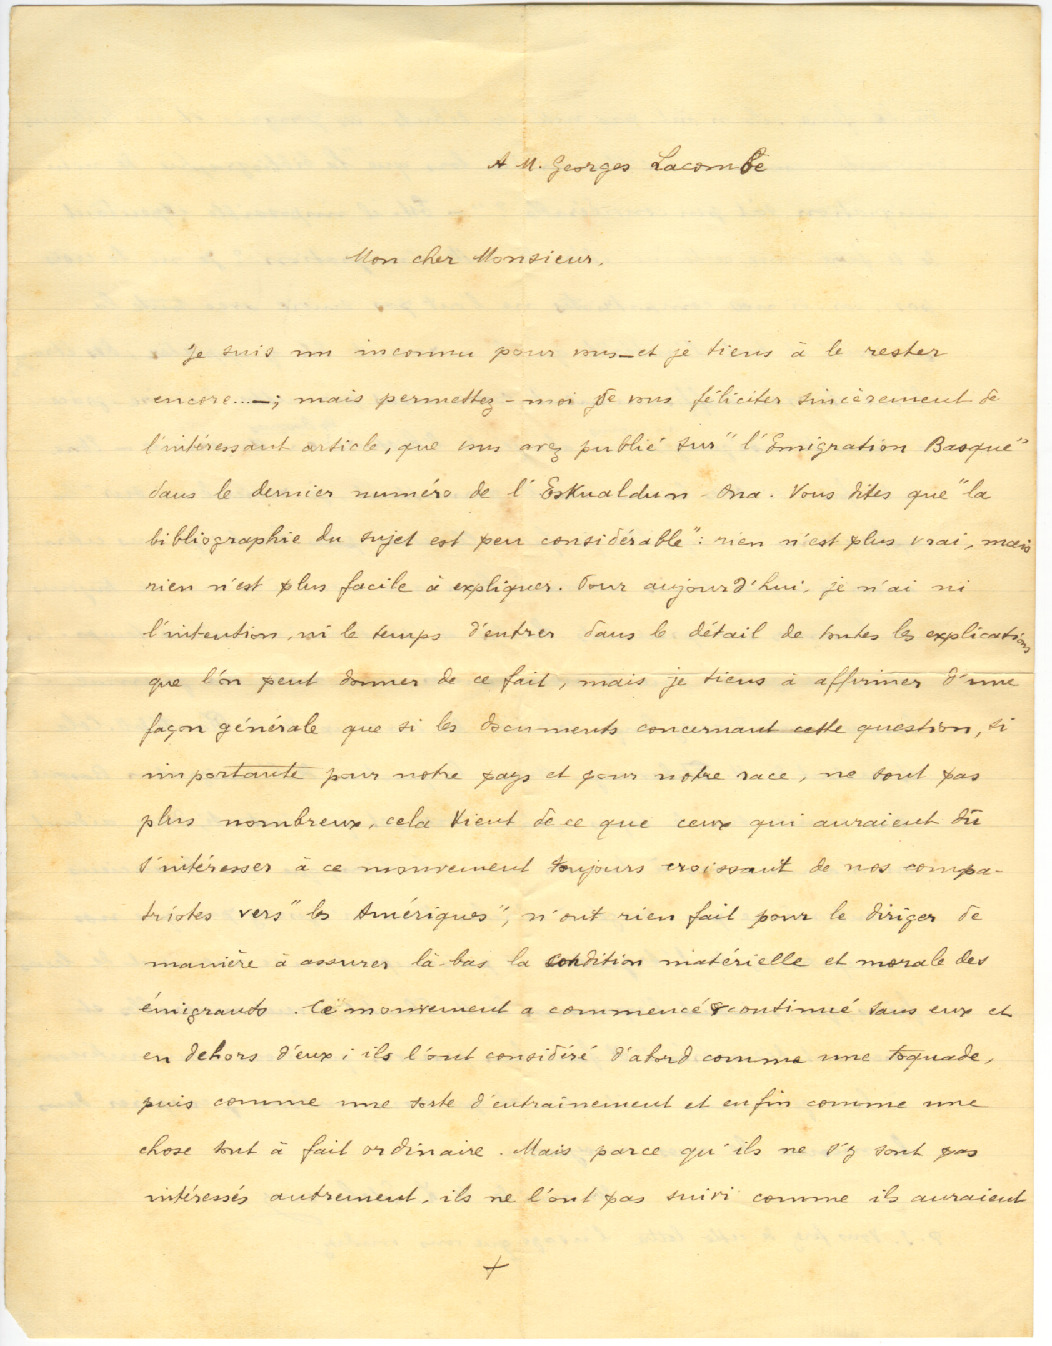 A M. Georges Lacombe
Mon cher Monsieur.
Je suis un inconnu pour vous – et je tiens à le rester
encore...–; mais permettez-moi de vous féliciter sincèrement de
l'intéressant article, que vous avez publié sur "l'Emigration Basque"
dans le dernier numéro de l'Eskualdun-Ona. Vous dites que "la
bibliographie du sujet est peu considérable": rien n'est plus vrai, mais
rien n'est plus facile à expliquer. Pour aujourd'hui, je n'ai ni
l'intention, ni le temps d'entrer dans le détail de toutes les explications
que l'on peut donner de ce fait, mais je tiens à affirmer d'une
façon générale que si les documents concernant cette question, si
importante pour notre pays et pour notre race, ne sont pas
plus nombreux, cela vient de ce que ceux qui auraient dû
s'intéresser à ce mouvement toujours croissant de nos compa-
triotes vers "les Amériques", n'ont rien fait pour le diriger de
manière à assurer là-bas la condition matérielle et morale des
émigrants. Ce mouvement a commencé & continué sans eux et
en dehors d'eux; ils l'ont considéré d'abord comme une toquade,
puis comme une sorte d'entraînement et enfin comme une
chose tout à fait ordinaire. Mais parce qu'ils ne s'y sont pas
intéressés autrement, ils ne l'ont pas suivi comme ils auraient
+